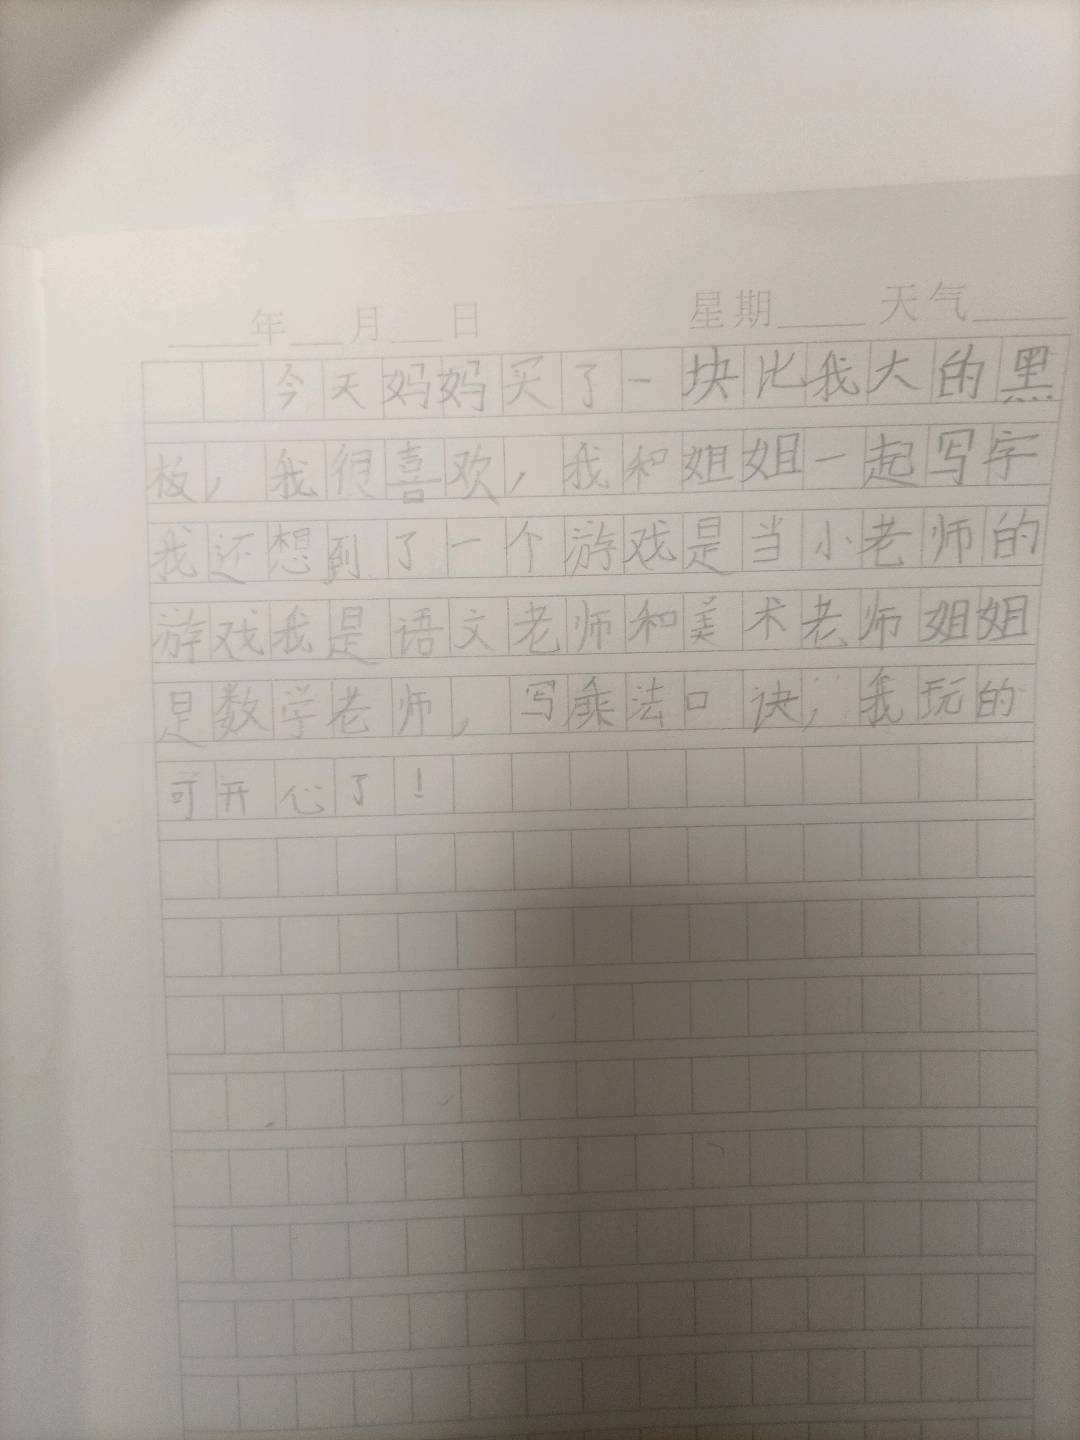 ____年___月___日 星期____天气____
今天妈妈买了一块比我大的黑
板,我很喜欢,我和姐姐一起写字
我还想到了一个游戏是当小老师的
游戏我是语文老师和美术老师姐姐
是数学老师,写乘法口诀,我玩的
可开心了!